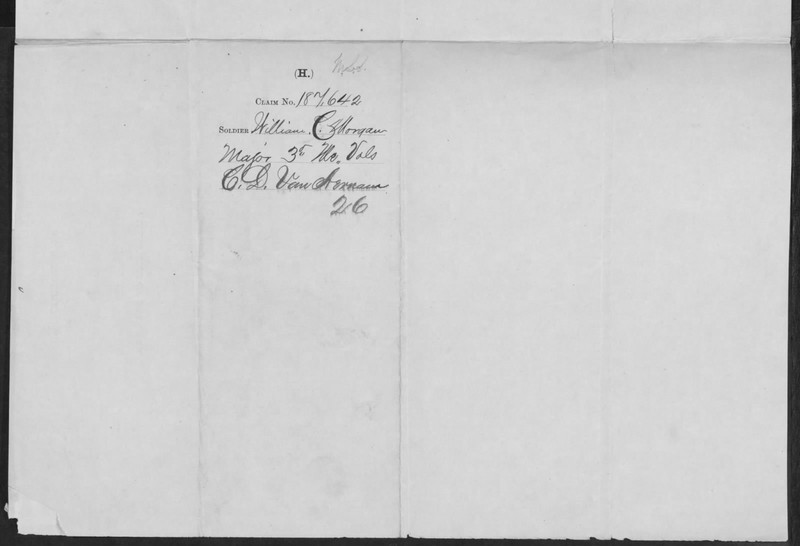 (H.) Med.
CLAIM No. 187,642
SOLDIER William C. Morgan
Major 3d Me. Vols
C. D. Van Aernam
26